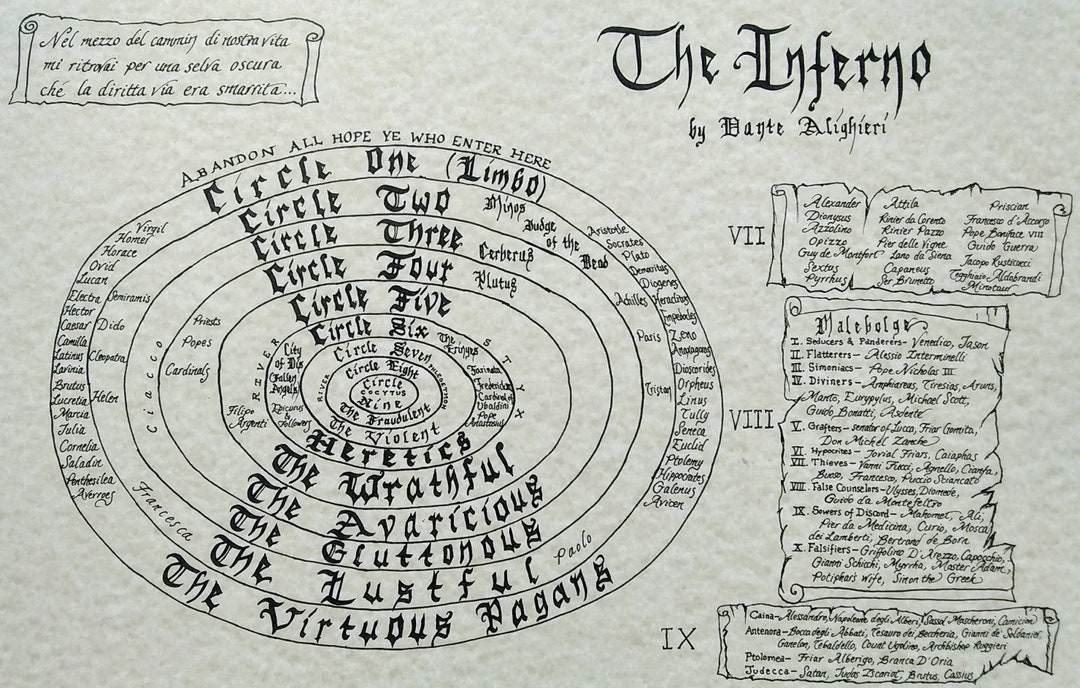 Nel mezzo del cammin di nostra vita
mi ritrovai per una selva oscura
ché la diritta via era smarrita...
The Inferno
by Dante Alighieri
ABANDON ALL HOPE YE WHO ENTER HERE
Circle One (Limbo)
Circle Two
Minos
Judge
of the
Dead
Circle Three
Cerberus
Circle Four
Plutus
Circle Five
Circle Six
The
Erinyes
Circle Seven
Circle Eight
Circle
COCYTUS
Nine
The Fraudulent
The Violent
Heretics
The Wrathful
The Avaricious
The Gluttonous
The Lustful
The Virtuous Pagans
Virgil
Homer
Horace
Ovid
Lucan
Electra
Hector
Caesar
Camilla
Latinus
Lavinia
Brutus
Lucretia
Marcia
Julia
Cornelia
Saladin
Penthesilea
Averroes
Semiramis
Dido
Cleopatra
Helen
Francesca
Ciacco
Priests
Popes
Cardinals
RIVER
STYX
Filipo
Argenti
City
of Dis
Fallen
Angels
Epicurus
&
Followers
RIVER
PHLEGETHON
Farinata
Frederick
Cardinal
Ubaldini
Pope
Anastasius
Aristotle
Socrates
Plato
Democritus
Diogenes
Heraclitus
Empedocles
Zeno
Anaxagoras
Dioscorides
Orpheus
Linus
Tully
Seneca
Euclid
Ptolemy
Hippocrates
Galenus
Avicen
Achilles
Paris
Tristan
Paolo
VII
Alexander
Dionysus
Azzolino
Opizzo
Guy de Montfort
Sextus
Pyrrhus
Attila
Rinier da Corento
Rinier Pazzo
Pier delle Vigne
Lano da Siena
Capaneus
Ser Brunetto
Priscian
Francesco d'Accorso
Pope Boniface VIII
Guido Guerra
Jacopo Rusticucci
Tegghiaio Aldobrandi
Minotaur
VIII
Malebolge
I. Seducers & Panderers- Venedico, Jason
II. Flatterers- Alessio Interminelli
III. Simoniacs- Pope Nicholas III
IV. Diviners- Amphiareas, Tiresias, Aruns,
Manto, Eurypylus, Michael Scott,
Guido Bonatti, Asdente
V. Grafters- senator of Lucca, Friar Gomita,
Don Michel Zanche
VI. Hypocrites- Jovial Friars, Caiaphas
VII. Thieves- Vanni Fucci, Agnello, Cianfa,
Buoso, Francesco, Puccio Sciancato
VIII. False Counselors- Ulysses, Diomede,
Guido da Montefeltro
IX. Sowers of Discord- Mahomet, Ali,
Pier da Medicina, Curio, Mosca
dei Lamberti, Bertrand de Born
X. Falsifiers- Griffolino D'Arezzo, Capocchio,
Gianni Schicchi, Myrrha, Master Adam,
Potiphar's Wife, Sinon the Greek
IX
Caina- Alessandro, Napoleone degli Alberi, Sassol Mascheroni, Camicion
Antenora- Bocca degli Abbati, Tesauro dei Beccheria, Gianni de' Soldanier
Ganelon, Tebaldello, Count Ugolino, Archbishop Ruggieri
Ptolomea- Friar Alberigo, Branca D'Oria
Judecca- Satan, Judas Iscariot, Brutus, Cassius